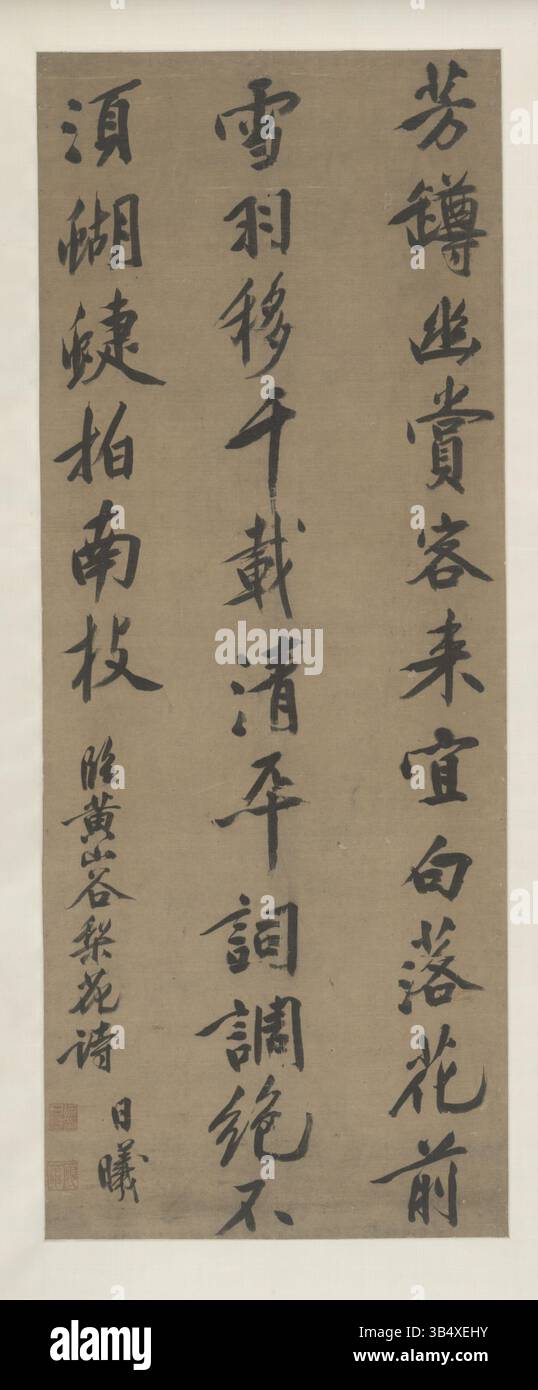 芳罇幽賞客来宜向落花前
雪羽移千載清平詞調絶不
須蝴蜨拍南枝
臨黄山谷梨花詩
日曦
alamy
alamy
Image ID: 3B4XEHY
www.alamy.com